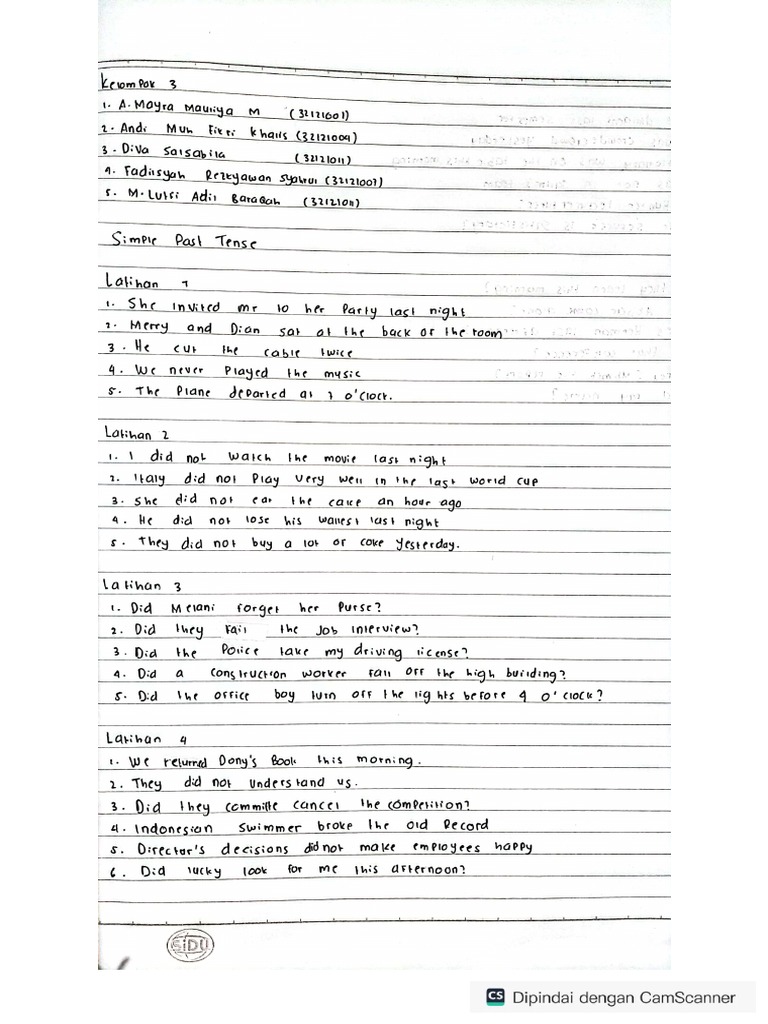 Kelompok 3
1. A. Mayra Mauliya M (32121001)
2. Andi Muh Fikri Khalis (32121009)
3. Diva Salsabila (32121011)
4. Fadilsyah Rezkyawan Syahrul (32121007)
5. M. Lutfi Adil Baraqah (32121011)
Simple Past Tense
Latihan 1
1. She invited me to her Party last night
2. Merry and Dian sat at the back of the room
3. He cut the cable twice
4. We never Played the music
5. The Plane departed at 7 o'clock.
Latihan 2
1. I did not watch the movie last night
2. Italy did not Play very well in the last world cup
3. She did not eat the cake an hour ago
4. He did not lose his wallest last night
5. They did not buy a lot of coke yesterday.
Latihan 3
1. Did Melani forget her Purse?
2. Did they Fail the Job interview?
3. Did the Police take my driving license?
4. Did a construction worker fall off the high building?
5. Did the office boy turn off the lights before 4 o'clock?
Latihan 4
1. We returned Dony's Book this morning.
2. They did not understand us.
3. Did they committe cancel the competition?
4. Indonesian swimmer broke the old Record
5. Director's decisions did not make employees happy
6. Did lucky look for me this afternoon?
SiDU
CS Dipindai dengan CamScanner